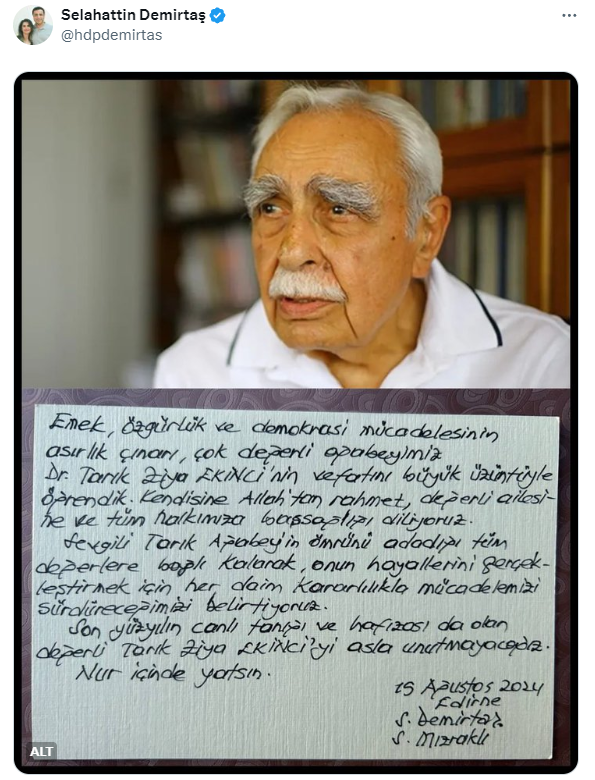 Selahattin Demirtaş
@hdpdemirtas
Emek, özgürlük ve demokrasi mücadelesinin
asırlık çınarı, çok değerli ağabeyimiz
Dr. Tarık Ziya EKİNCİ'nin vefatını büyük üzüntüyle
öğrendik. Kendisine Allah'tan rahmet, değerli ailesi-
ne ve tüm halkımıza başsağlığı diliyoruz.
Sevgili Tarık Ağabey'in ömrünü adadığı tüm
değerlere bağlı kalarak, onun hayallerini gerçek-
leştirmek için her daim kararlılıkla mücadelemizi
sürdüreceğimizi belirtiyoruz.
Son yüzyılın canlı tanığı ve hafızası da olan
değerli Tarık Ziya EKİNCİ'yi asla unutmayacağız.
Nur içinde yatsın.
15 Ağustos 2024
Edirne
S. Demirtaş
S. Mızraklı
ALT